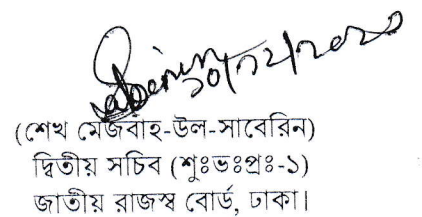 ১০/১২/২০২০
(শেখ মেজবাহ-উল-সাবেরিন)
দ্বিতীয় সচিব (শুঃভঃপ্রঃ-১)
জাতীয় রাজস্ব বোর্ড, ঢাকা।